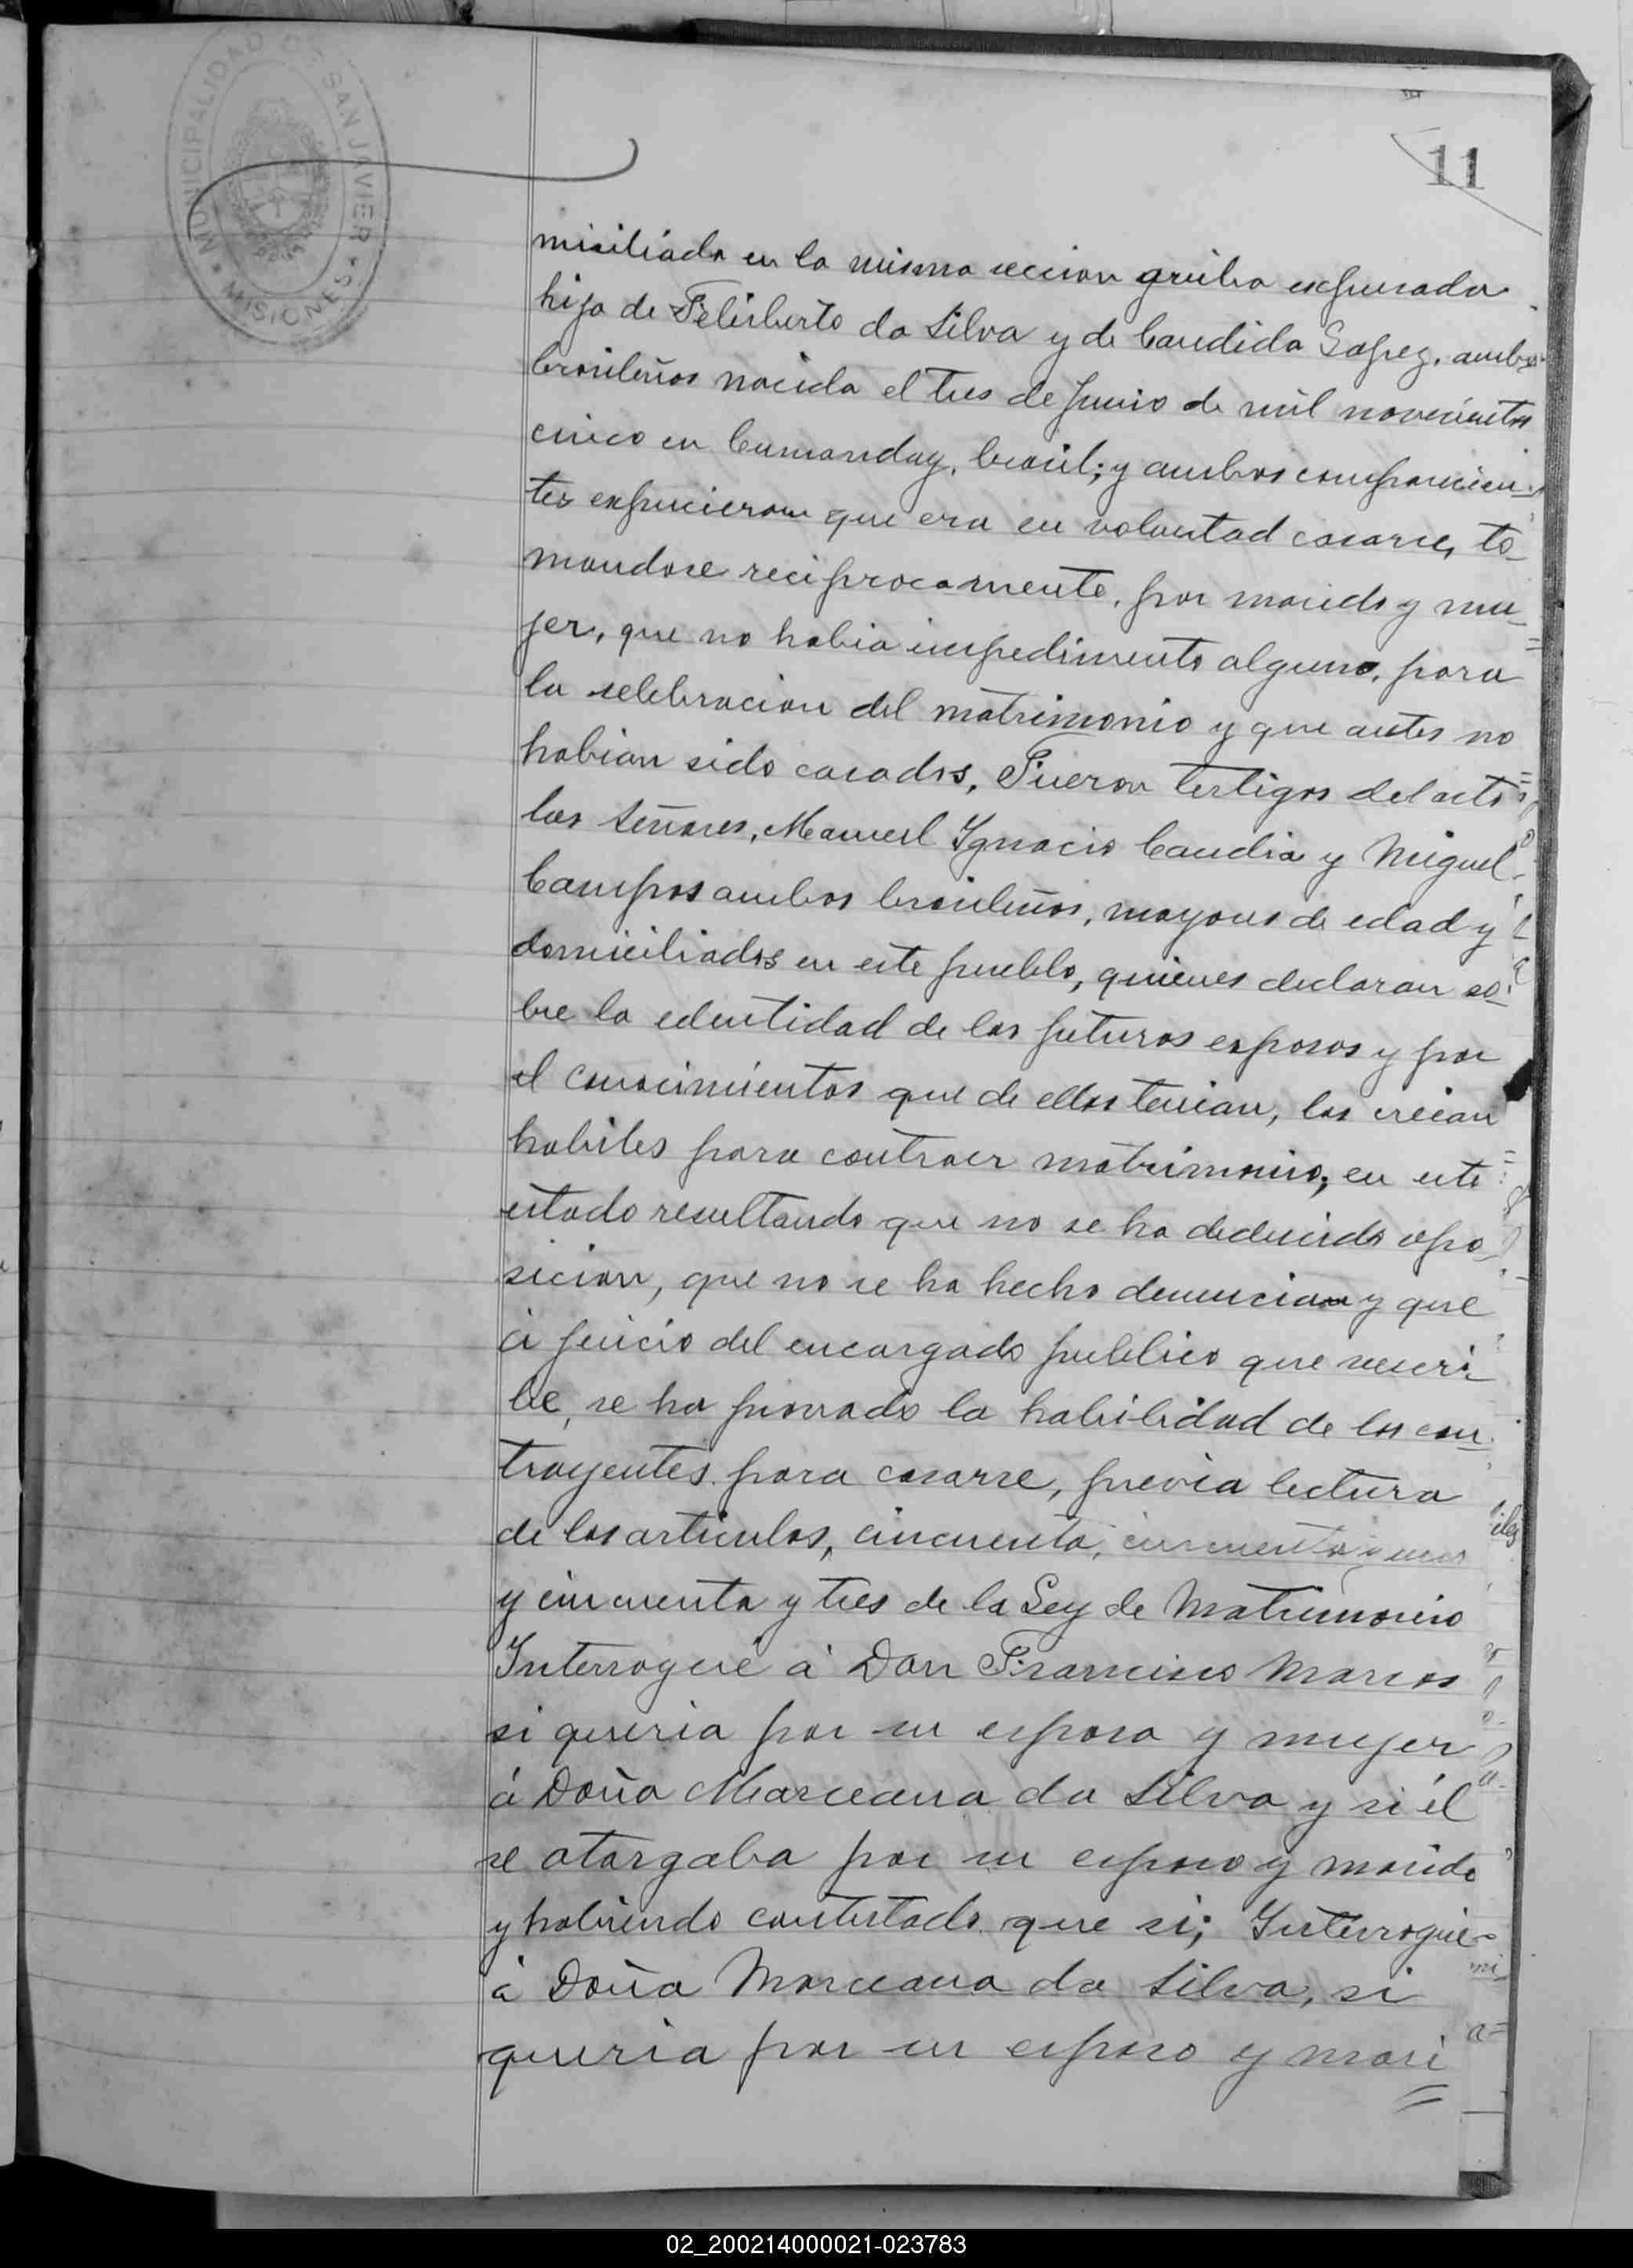 MUNICIPALIDAD DE SAN JAVIER
* MISIONES *
11
miciliada en la misma seccion arriba expresada
hija de Feliberto da Silva y de Candida Lopez, ambos
brasileños nacida el tres de Junio de mil novecientos
cinco en Cumanday, brasil; y ambos comparecien-
tes expucieron que era su voluntad casarse, to-
mandose reciprocamente, por marido y mu-
jer, que no habia impedimento alguno, para
la selebracion del matrimonio y que antes no
habian sido casados, Fueron testigos del acto
los señores, Manuel Ignacio Candia y Miguel
Campos ambos brasileños, mayores de edad y
domiciliados en este pueblo, quienes declaran so-
bre la edentidad de los futuros esposos y por
el conocimientos que de ellos tenian, los creian
habiles para contraer matrimonio; en este
estado resultando que no se ha deducido opo-
sicion, que no se ha hecho denuncia y que
á juicio del encargado publico que suscri-
be, se ha provado la habilidad de los con-
trayentes para casarse, previa lectura
de los articulos, cincuenta, cincuenta y uno
y cincuenta y tres de la Ley de Matrimonio
Interrogué á Don Francisco Marcos
si queria por su esposa y mujer
á Doña Marceana da Silva y si él
se otorgaba por su esposo y marido
y habiendo contestado que si; Interrogué
á Doña Marceana da Silva, si
queria por su esposo y mari
02_200214000021-023783